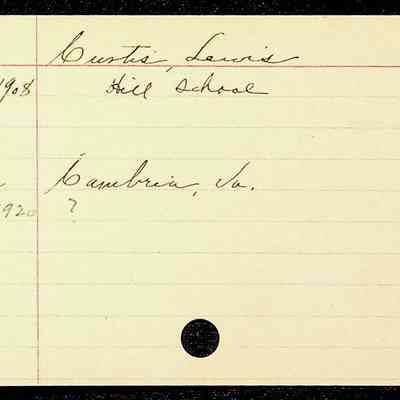 Curtis, Lewis
1908 Hill School
Cambria, Va.
1920 ?